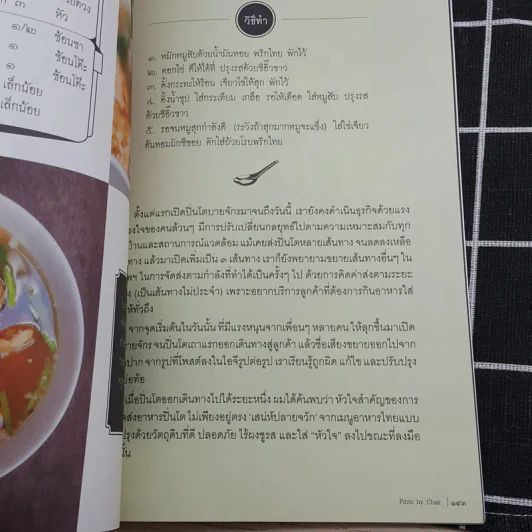 ๓ หัว
๑/๒ ช้อนชา
๑ ช้อนโต๊ะ
๑ ช้อนโต๊ะ
เล็กน้อย
เล็กน้อย
วิธีทำ
๑. หมักหมูสับด้วยน้ำมันหอย พริกไทย พักไว้
๒. ตอกไข่ ตีให้ได้ที่ ปรุงรสด้วยซีอิ๊วขาว
๓. ตั้งกระทะให้ร้อน เจียวไข่ให้สุก พักไว้
๔. ตั้งน้ำซุป ใส่กระเทียม เกลือ รอให้เดือด ใส่หมูสับ ปรุงรส
ด้วยซีอิ๊วขาว
๕. รอจนหมูสุกกำลังดี (ระวังถ้าสุกมากหมูจะแข็ง) ใส่ไข่เจียว
ต้นหอมผักชีซอย ตักใส่ถ้วยโรยพริกไทย
ตั้งแต่แรกเปิดปิ่นโตนายจักรมาจนถึงวันนี้ เรายังคงดำเนินธุรกิจด้วยแรง
แรงใจของคนล้วนๆ มีการปรับเปลี่ยนกลยุทธ์ไปตามความเหมาะสมกับทุก
บ้านและสถานการณ์แวดล้อม แม้เคยส่งปิ่นโตหลายเส้นทาง จนลดลงเหลือ
ทาง แล้วมาเปิดเพิ่มเป็น ๓ เส้นทาง เราก็ยังพยายามขยายเส้นทางอื่นๆ ใน
ในการจัดส่งตามกำลังที่ทำได้เป็นครั้งๆ ไป ด้วยการคิดค่าส่งตามระยะ
(เป็นเส้นทางไม่ประจำ) เพราะอยากบริการลูกค้าที่ต้องการกินอาหารใส่
ให้ทั่วถึง
จากจุดเริ่มต้นในวันนั้น ที่มีแรงหนุนจากเพื่อนๆ หลายคน ให้ลุกขึ้นมาเปิด
นายจักร จนปิ่นโตเถาแรกออกเดินทางสู่ลูกค้า แล้วชื่อเสียงขยายออกไปจาก
ปาก จากรูปที่โพสต์ลงในไอจีรูปต่อรูป เราเรียนรู้ถูกผิด แก้ไข และปรับปรุง
ย่อท้อ
เมื่อปิ่นโตออกเดินทางไปได้ระยะหนึ่ง ผมได้ค้นพบว่า หัวใจสำคัญของการ
ส่งอาหารปิ่นโต ไม่เพียงอยู่ตรง ‘เสน่ห์ปลายจวัก’ จากเมนูอาหารไทยแบบ
ปรุงด้วยวัตถุดิบที่ดี ปลอดภัย ไร้ผงชูรส และใส่ “หัวใจ” ลงไปขณะที่ลงมือ
นั้น
Pinto by Chak | ๑๔๓